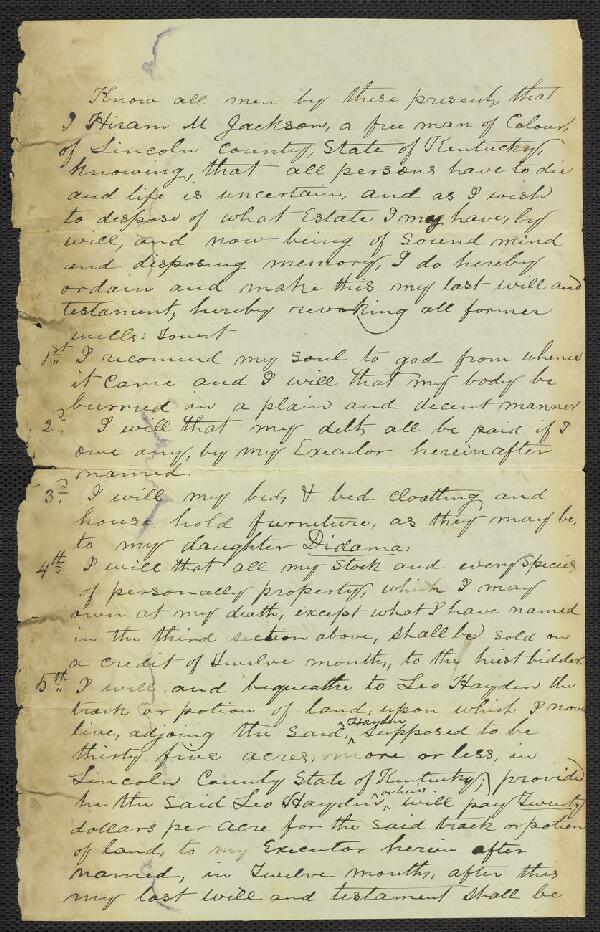 Know all men by these present, that
I Hiram M Jackson, a free man of Colour,
of Lincoln County, State of Kentucky,
knowing, that all persons have to die
and life is uncertain, and as I wish
to dispose of what Estate I may have, by
will, and now being of Sound mind
and disposing memory, I do hereby
ordain and make this my last will and
testament, hereby revoking all former
wills: towit
1st I recomend my soul to god from whence
it Came and I will that my body be
burried in a plain and decent manner
2d I will that my debts all be paid if I
owe any, by my Executor hereinafter
named.
3d I will my beds & bed cloathing and
house hold furniture, as they may be,
to my daughter Didama.
4th I will that all my Stock and every species
of personally property, which I may
own at my death, except what I have named
in the third section above, shall be sold on
a credit of Twelve months, to the hiest bidder
5th I will and bequeathe to Leo Hayden the
track or potion of land, upon which I now
live, adjoing the said, Hayden supposed to be
thirty five acres, more or less, in
Lincoln County State of Kentucky, provided
he the said Leo Hayden, or heirs. will pay Twenty
dollars per acre for the said track or potion
of land, to my Executor herein after
named, in Twelve months, after this
my last will and testament shall be